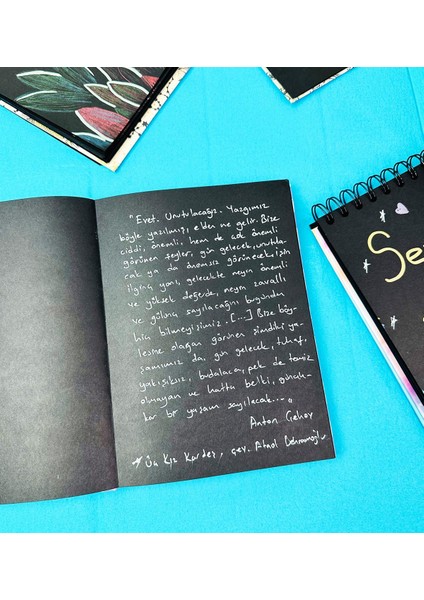 "Evet. Unutulacağız. Yazgımız
böyle yazılmış, elden ne gelir. Bize
ciddi, önemli, hem de çok önemli
görünen şeyler, gün gelecek, unutula-
cak ya da önemsiz görünecek. İşin
ilginç yanı, gelecekte neyin önemli
ve yüksek değerde, neyin zavallı
ve gülünç sayılacağını bugünden
hiç bilmeyişimiz. [...] Bize böy-
lesine olağan görünen şimdiki ya-
şamımız da, gün gelecek, tuhaf,
yakışıksız, budalaca, pek de temiz
olmayan ve hatta belki, günah-
kar bir yaşam sayılacak..."
Anton Çehov
*Üç Kız Kardeş, çev.
Se